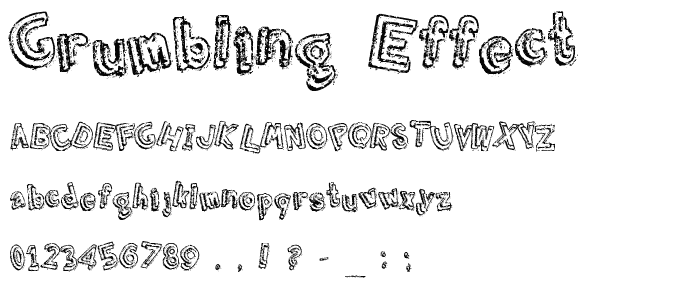 Grumbling Effect
ABCDEFGHIJKLMNOPQRSTUVWXYZ
abcdefghijklmnopqrstuvwxyz
0123456789 . , ! ? - _ : ;